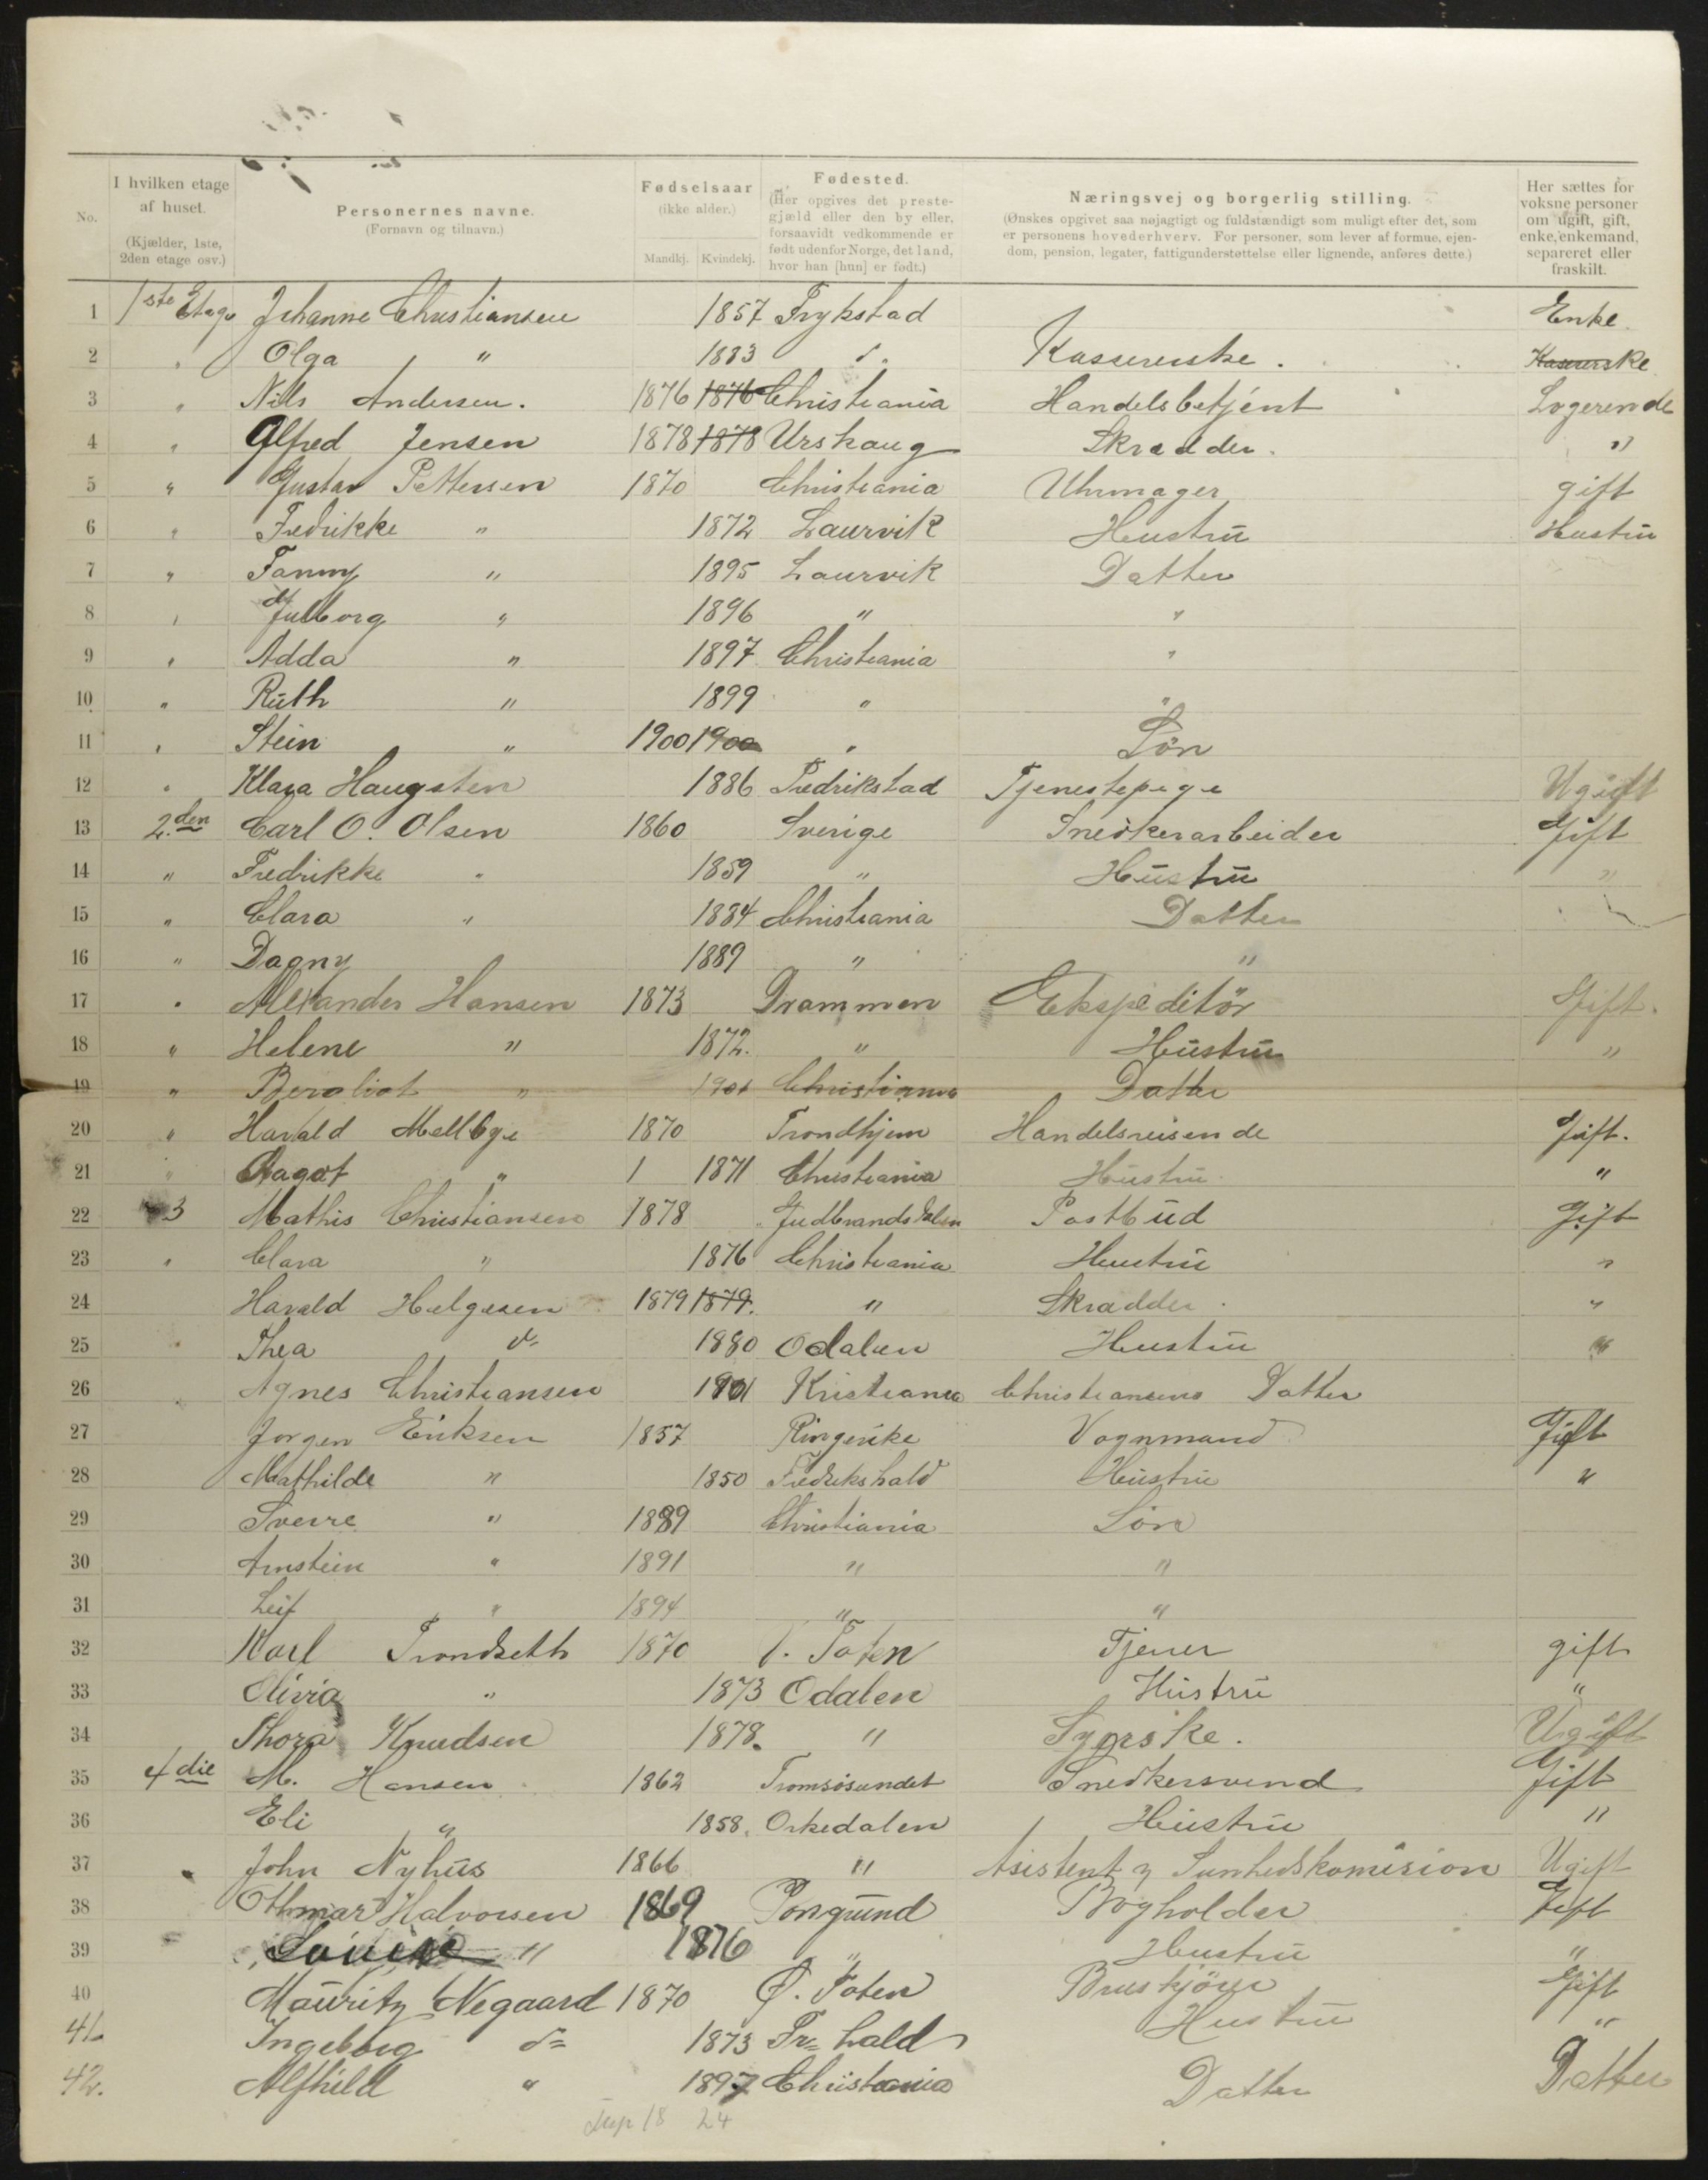 No.
I hvilken etage af huset.
(Kjælder, 1ste, 2den etage osv.)
Personernes navne.
(Fornavn og tilnavn.)
Fødselsaar
(ikke alder.)
Mandkj. Kvindekj.
Fødested.
(Her opgives det prestegjæld eller den by eller, forsaavidt vedkommende er født udenfor Norge, det land, hvor han [hun] er født.)
Næringsvej og borgerlig stilling.
(Ønskes opgivet saa nøjagtigt og fuldstændigt som muligt efter det, som er personens hovederhverv. For personer, som lever af formue, ejendom, pension, legater, fattigunderstøttelse eller lignende, anføres dette.)
Her sættes for voksne personer om ugift, gift, enke, enkemand, separeret eller fraskilt.
1 1ste Etage Johanne Christiansen 1857 Trykstad Enke
2 " Olga " 1883 d" Kassererske. Kasererske
3 " Nils Andersen. 1876 1876 Christiania Handelsbetjent Logerende
4 " Alfred Jensen 1878 1878 Urskaug Skrædder. "
5 " Gustav Pettersen 1870 Christiania Uhrmager gift
6 " Fredrikke " 1872 Laurvik Hustru Hustru
7 " Fanny " 1895 Laurvik Datter
8 " " 1896 " "
9 " Adda " 1897 Christiania "
10 " Ruth " 1899 " "
11 " Stein " 1900 1900 " Søn
12 " Klara Haugsten 1886 Fredrikstad Tjenestepige Ugift
13 2.den Carl O. Olsen 1860 Sverige Snedkerarbeider Gift
14 " Fredrikke " 1859 " Hustru "
15 " Clara " 1884 Christiania Datter
16 " Dagny 1889 " "
17 " Alexander Hansen 1873 Drammen Ekspeditör Gift.
18 " Helene " 1872. " Hustru "
19 " Bergliot " 1901 Christiania Datter
20 " Harald Mellbye 1870 Trondhjem Handelsreisende Gift.
21 " Aagot " 1 1871 Christiania Hustru "
22 3 Mathis Christiansen 1878 Gudbrandsdalen Postbud Gift
23 " Clara " 1876 Christiania Hustru "
24 Harald Helgesen 1879 1879. " Skradder. "
25 Thea d= 1880 Odalen Hustru "
26 Agnes Christiansen 1901 Kristiania Christiansens Datter
27 Jørgen Eriksen 1857 Ringerike Vognmand Gift
28 Mathilde " 1850 Fredrikshald Hustru "
29 Sverre " 1889 Christiania Søn
30 Arnstein " 1891 " "
31 Leif " 1894 " "
32 Karl Trondseth 1870 V. Toten Tjener gift
33 Olivia " 1873 Odalen Hustru "
34 Thora Knudsen 1878. " Syerske. Ugift
35 4die M. Hansen 1862 Tromsösundet Snedkersvend Gift
36 Eli " 1858. Orkedalen Hustru "
37 John Nyhus 1866 " Asistent y Sunhedskomision Ugift
38 Othmar Halvorsen 1869 Porsgrund Bogholder Gift
39 Louise " 1876 " Hustru "
40 Mauritz Negaard 1870 Ø. Toten Bruskjörer Gift
41. Ingeborg d= 1873 Fr=hald Hustru "
42. Alfhild " 1897 Christania Datter Datter
18 24